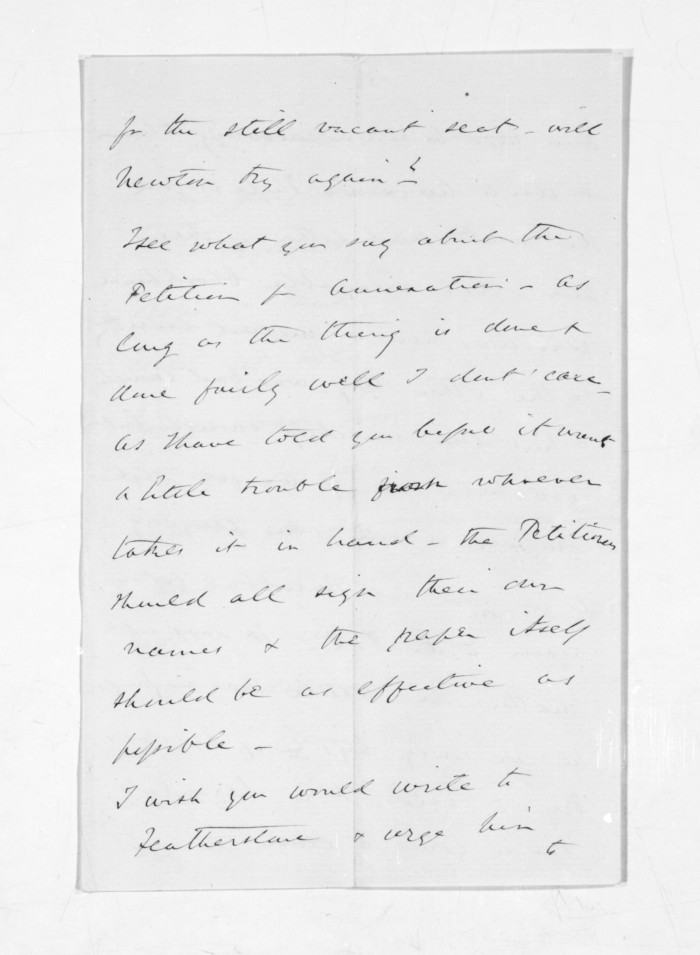 for the still vacant seat - will
Newton try again?
I see what you say about the
Petition for Annexation - As
long as the thing is done &
done fairly well I dont' care -
As I have told you before it wants
a little trouble from whoever
takes it in hand - the Petitioners
should all sign their own
names & the paper itself
should be as effective as
possible -
I wish you would write to
Featherstone & urge him
to